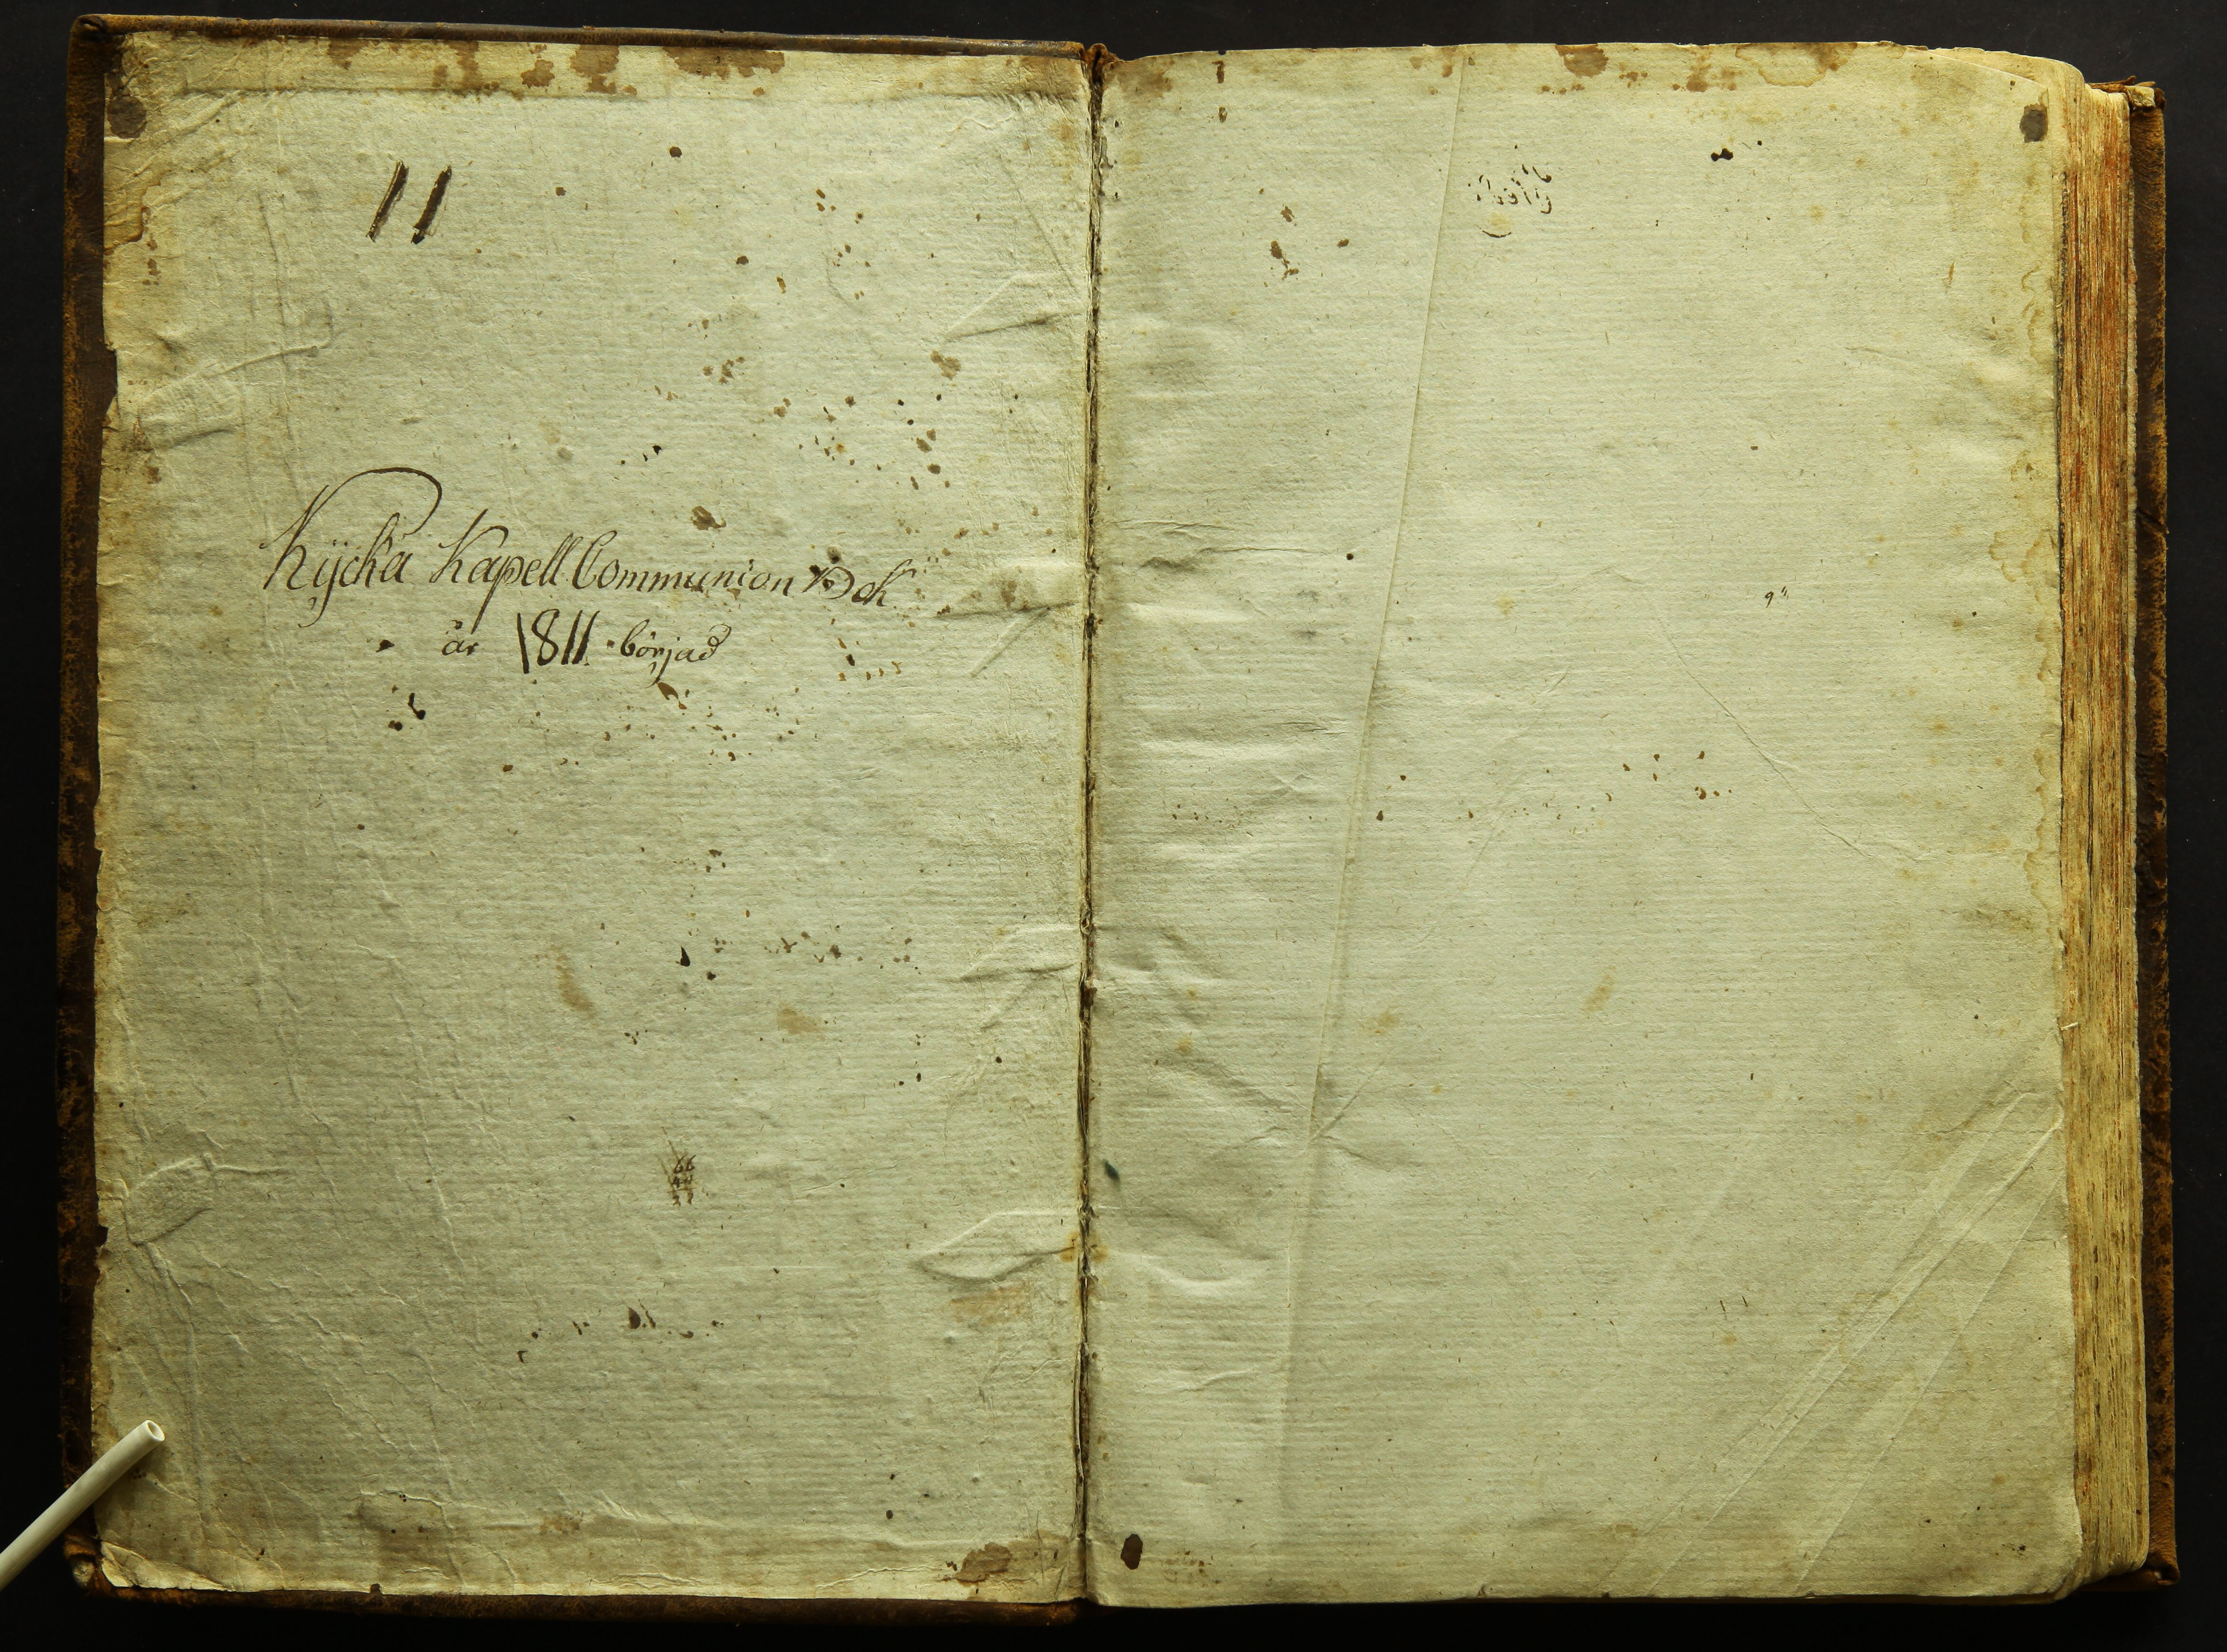 11
Kijcka Kapell Communion Bok
år 1811 börjad
66